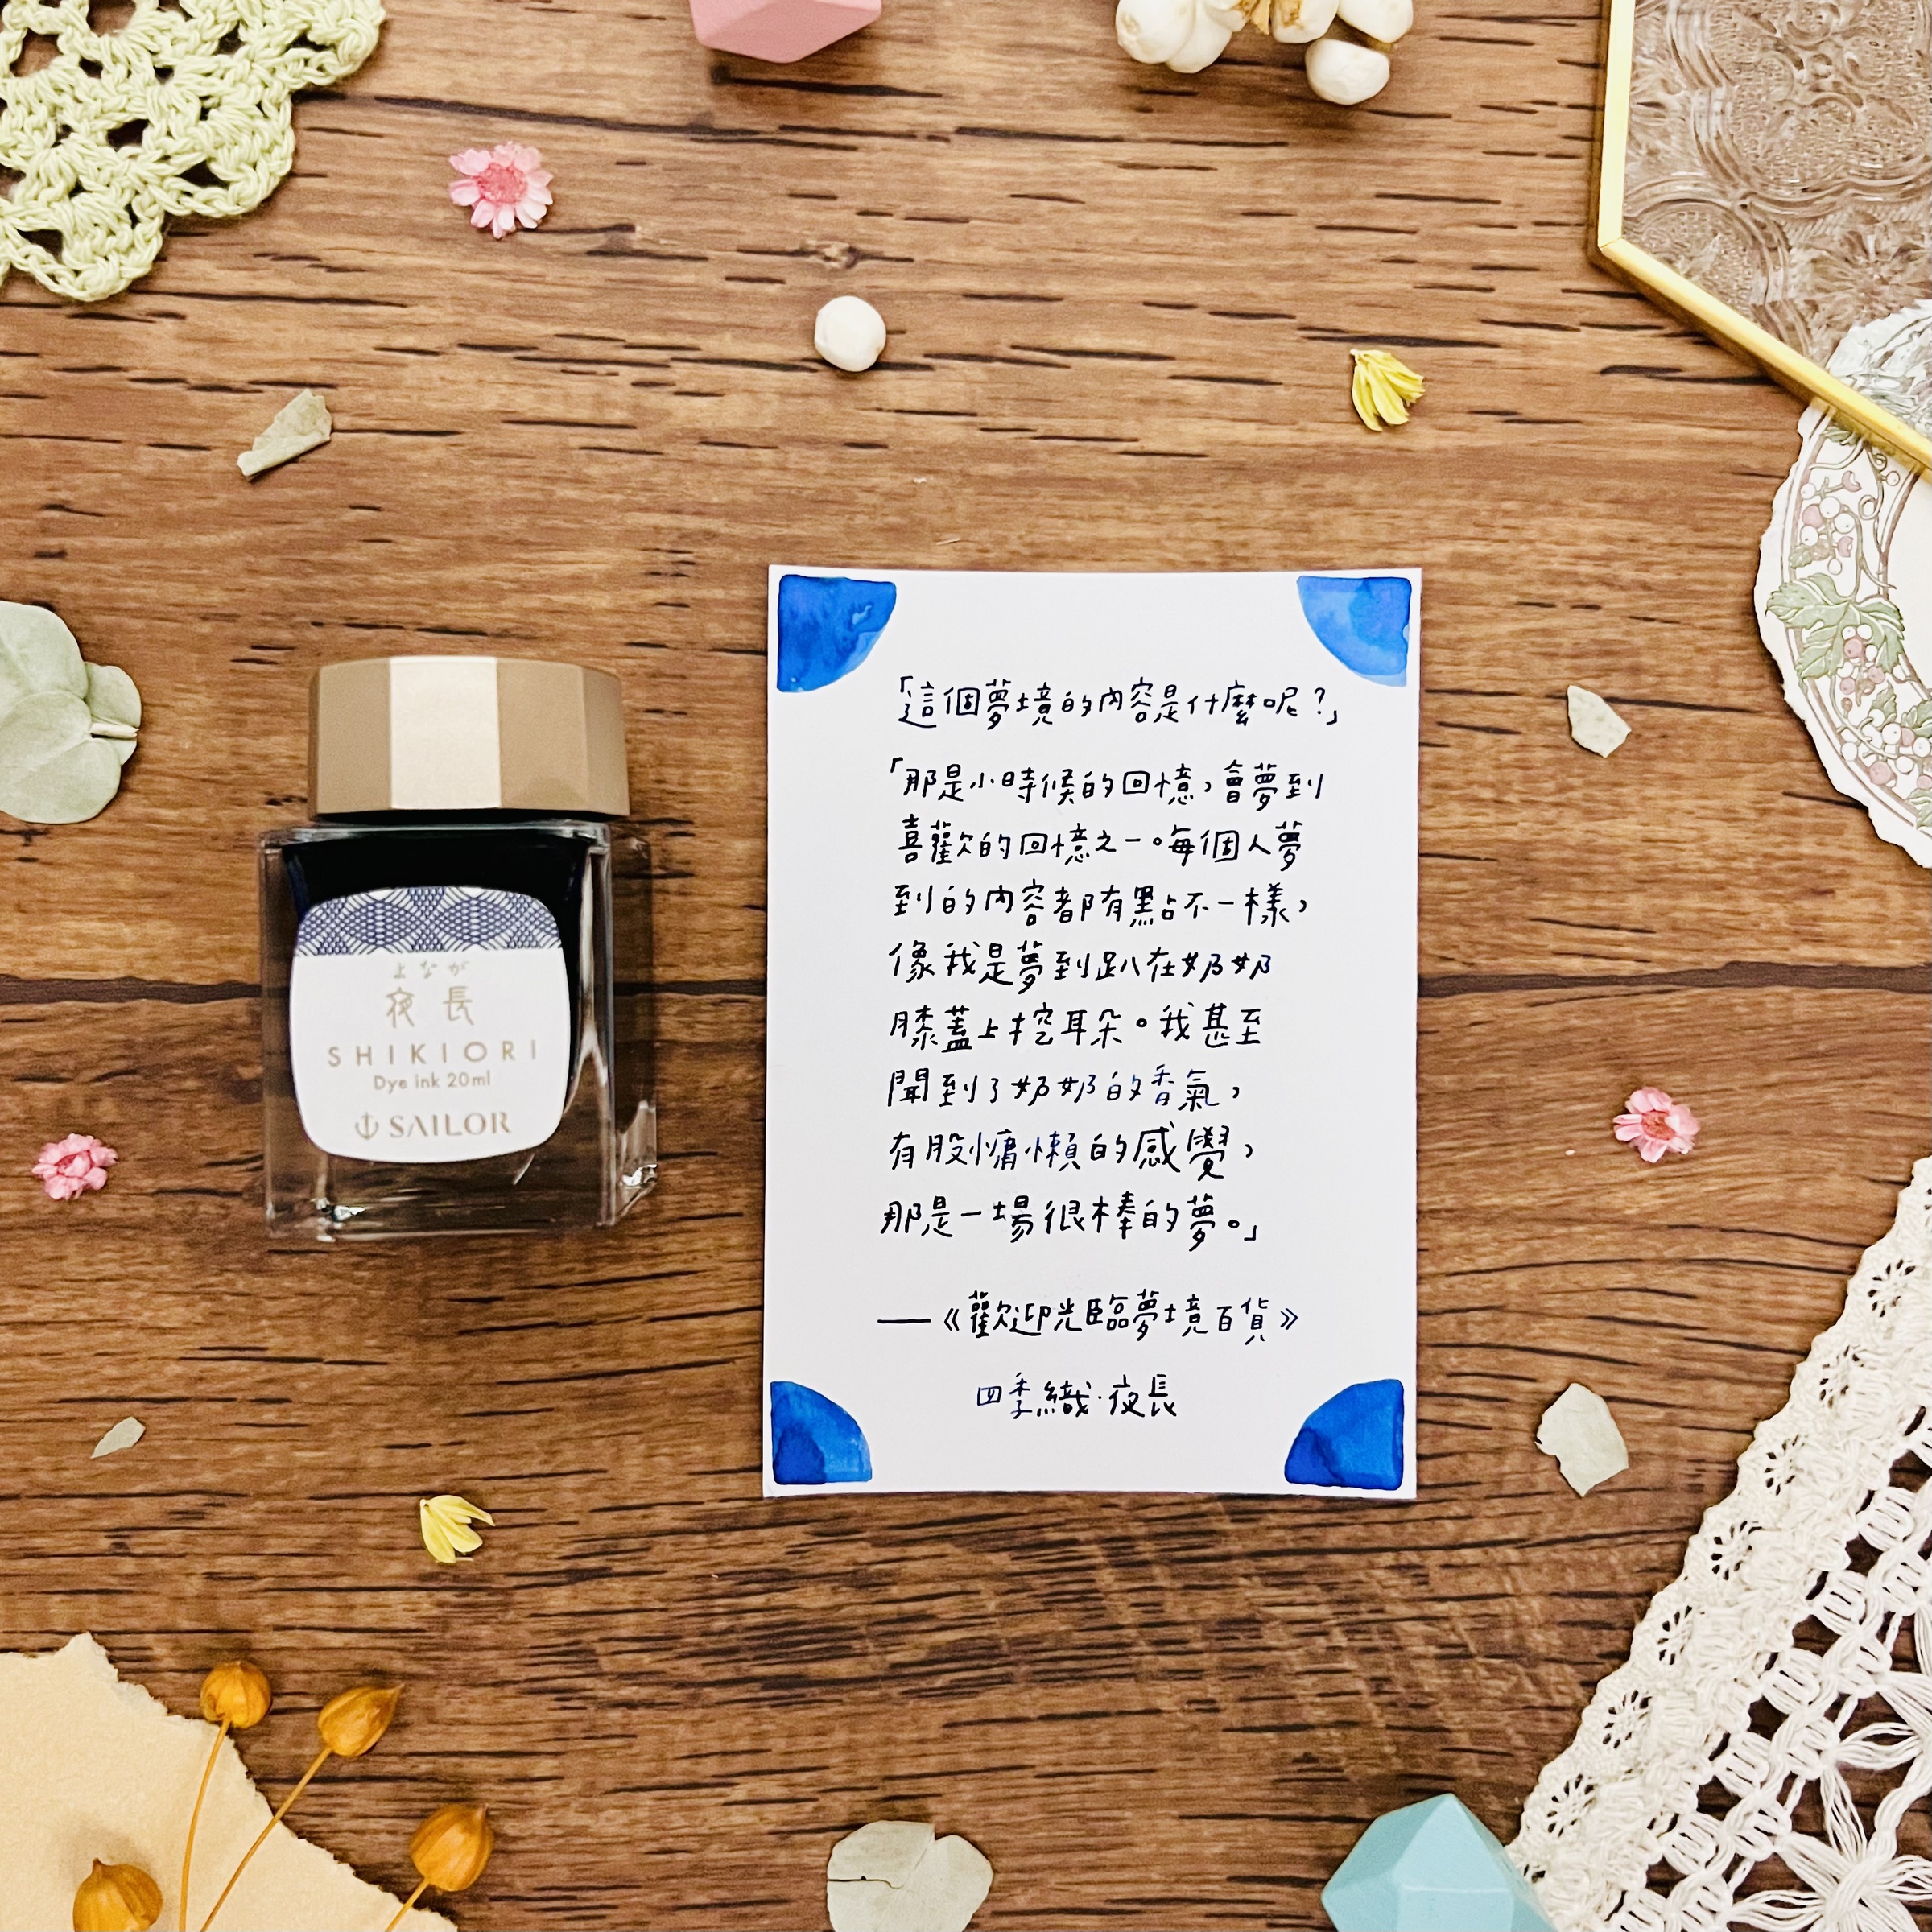 よなが
夜長
SHIKIORI
Dye ink 20ml
SAILOR
「這個夢境的內容是什麼呢?」
「那是小時候的回憶,會夢到
喜歡的回憶之一。每個人夢
到的內容都有點不一樣,
像我是夢到趴在奶奶
膝蓋上挖耳朵。我甚至
聞到了奶奶的香氣,
有股慵懶的感覺,
那是一場很棒的夢。」
——《歡迎光臨夢境百貨》
四季織·夜長